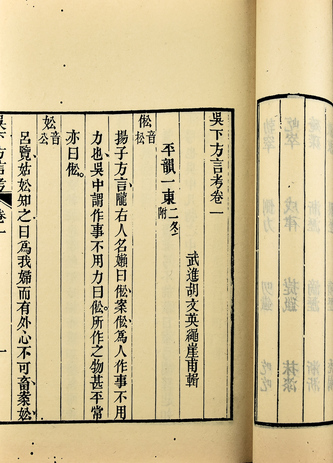 吳下方言考卷一
武進胡文英繩崖甫輯
平韻一東二冬附
倯音松
揚子方言隴右人名嬾曰倯案倯為人作事不用
力也吳中謂作事不用力曰倯所作之物甚平常
亦曰倯。
妐音公
呂覽姑妐知之曰為我婦而有外心不可畜案妐
吳下方言考 卷一 一